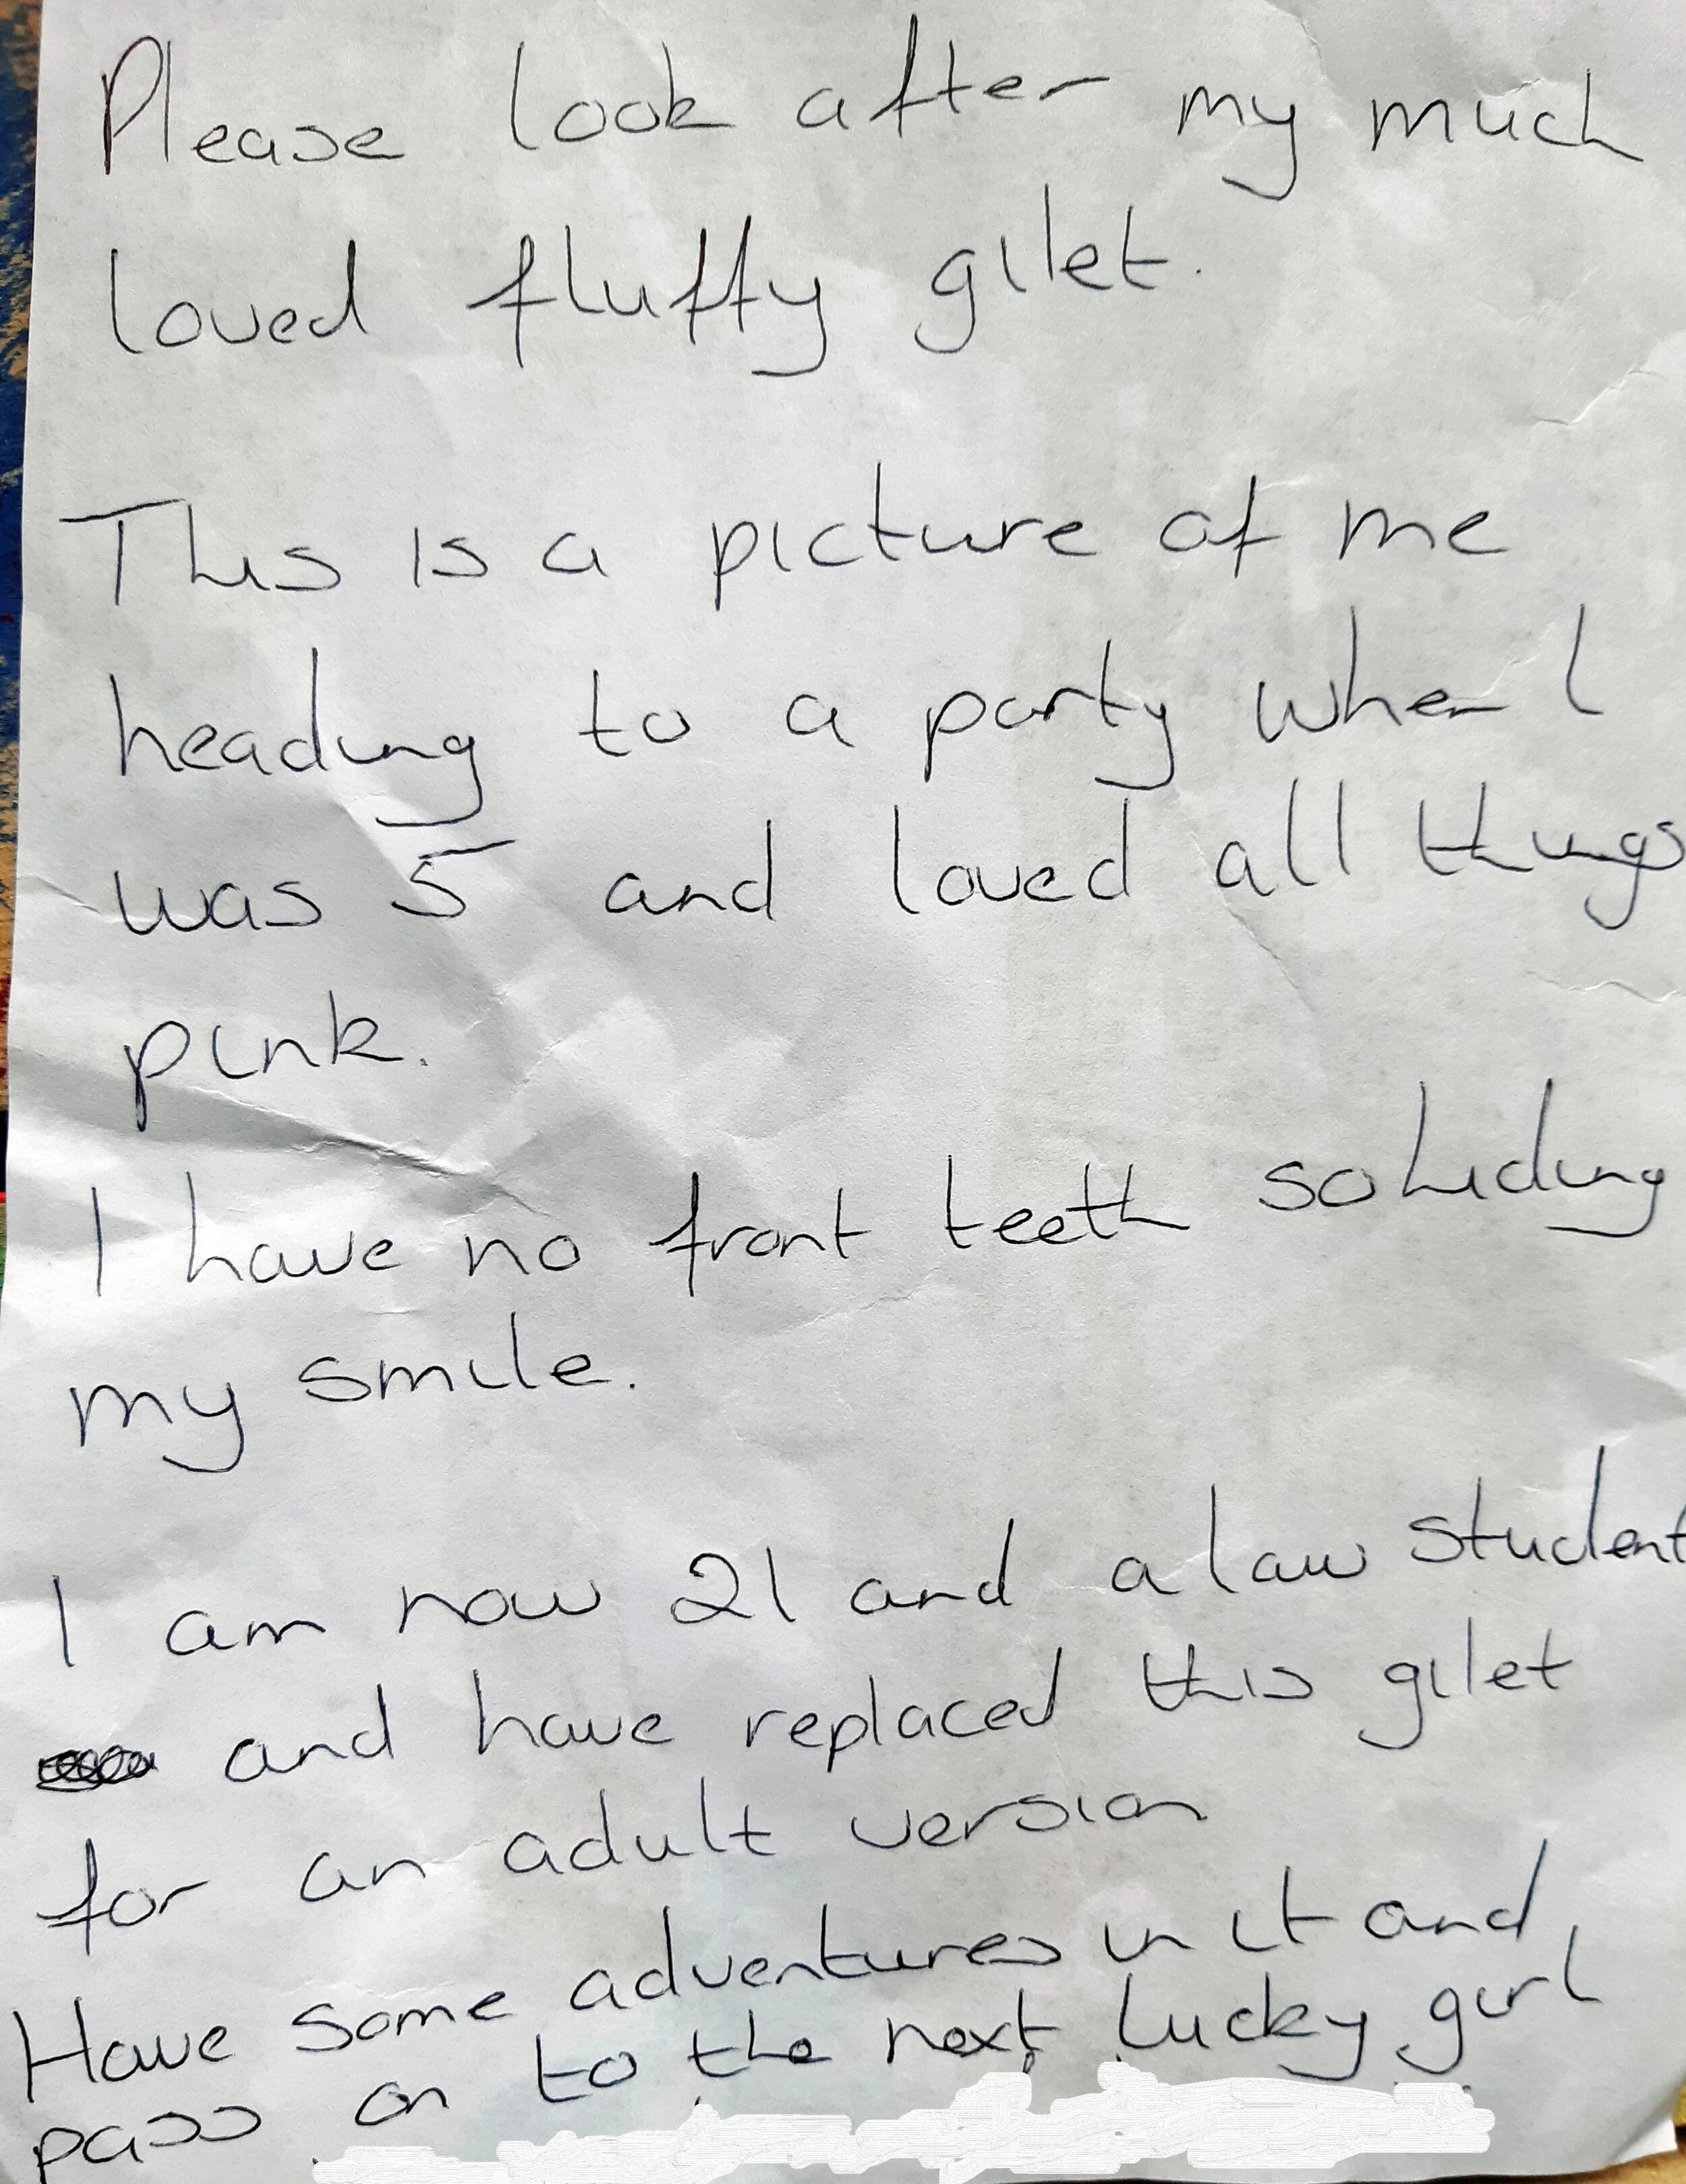 Please look after my much
loved fluffy gilet.
This is a picture of me
heading to a party when I
was 5 and loved all things
pink.
I have no front teeth so hiding
my smile.
I am now 21 and a law student
and have replaced this gilet
for an adult version
Have some adventures in it and
pass on to the next lucky girl